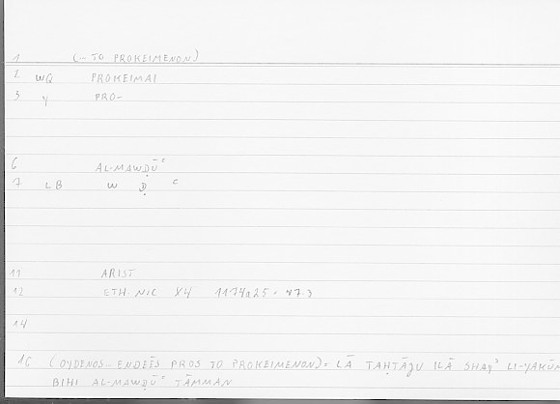 1 (– TO PROKEIMENON)
2 WQ PROKEIMAI
3 Y PRO-
6 AL-MAWḌŪʿ
7 LB W Ḍ ʿ
11 ARIST
12 ETH. NIC 14 1174a25 = 47.3
14
16 (OYDENOS ENDEĒS PROS TO PROKEIMENON) = LĀ TAḤTĀJU ILĀ SHAYʾ LI-YAKŪN
BIHI AL-MAWḌŪʿ TĀMMAN